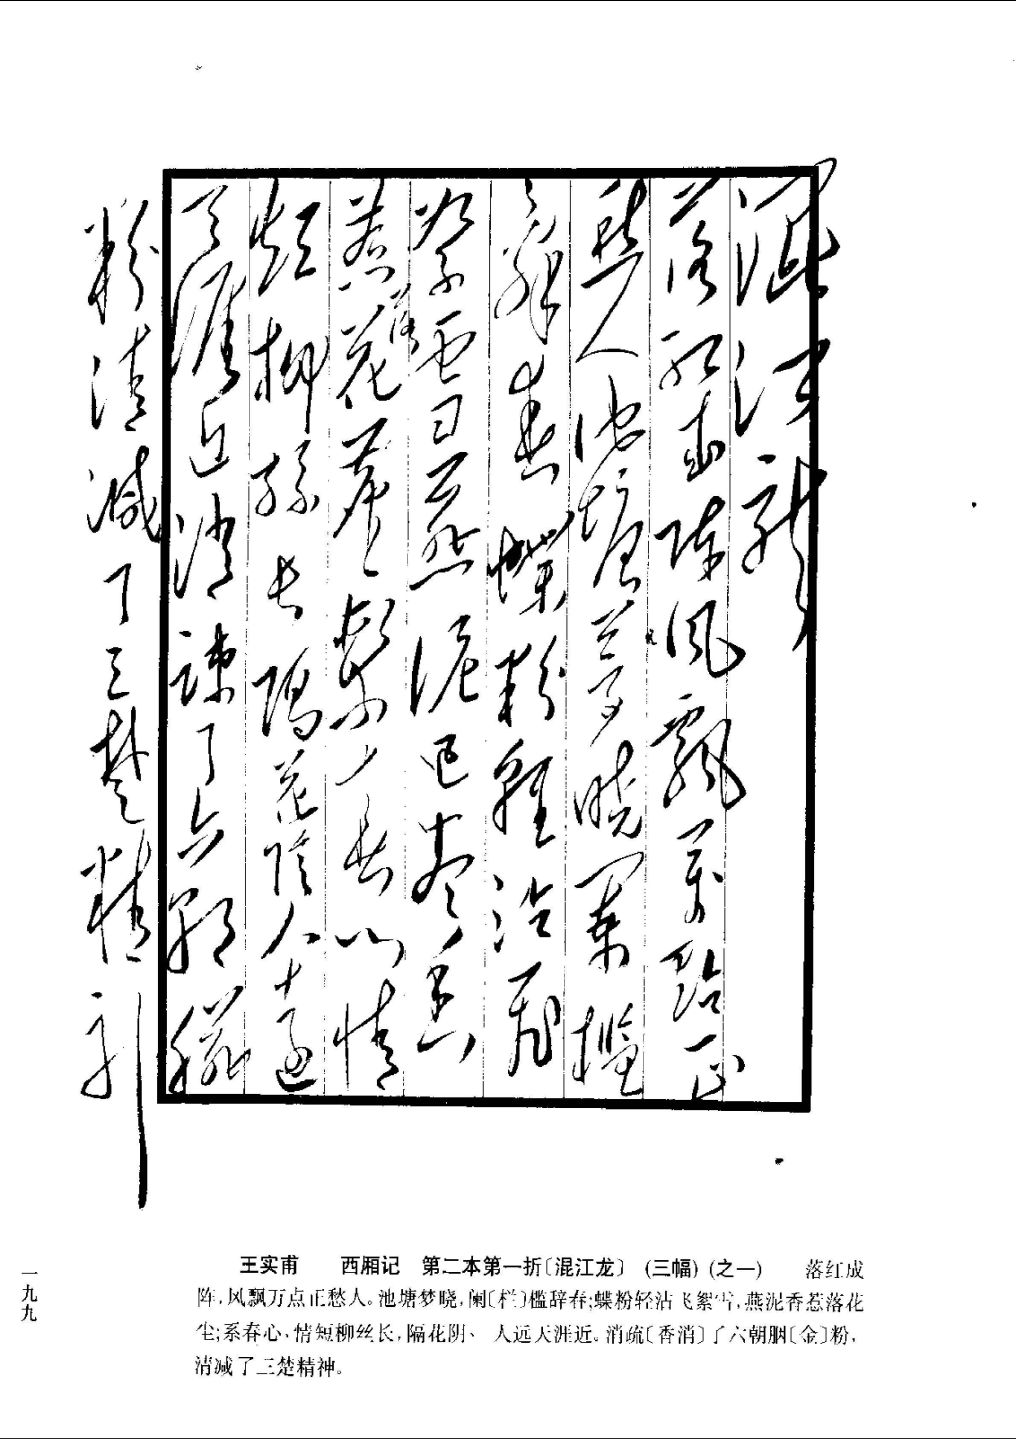 混江龍
落红成阵风飘万点正
愁人池塘梦晓阑槛
辞春蝶粉轻沾飞
絮雪燕泥香
惹落花尘系春心情
短柳丝长隔花阴人远
天涯近消疏了六朝胭
粉清减了三楚精神
王实甫 西厢记 第二本第一折〔混江龙〕 (三幅) (之一) 落红成
阵,风飘万点正愁人。池塘梦晓,阑〔栏〕槛辞春;蝶粉轻沾飞絮雪,燕泥香惹落花
尘;系春心,情短柳丝长,隔花阴、人远天涯近。消疏〔香消〕了六朝胭〔金〕粉,
清减了三楚精神。
一九九